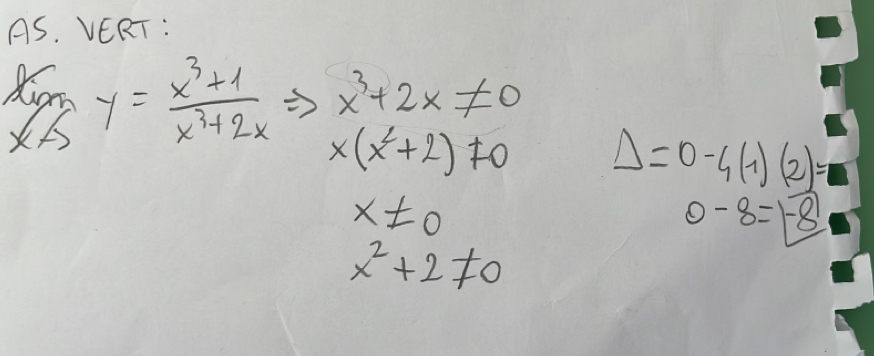 AS. VERT:
y = x³+1 / x³+2x => x³+2x ≠0
x(x²+2) ≠0
x≠0
x²+2≠0
Δ=0-4(1)(2)=
0-8=-8